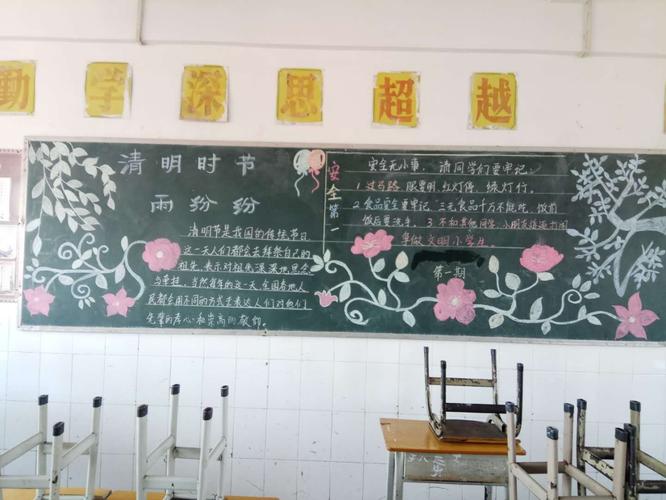 勤学深思超越
清明时节
雨纷纷
清明节是我国的传统节日
这一天人们都会去拜祭自己的
祖先,表示对祖先深深地思念
与尊挂,当然每年的这一天,全国各地人
民都会用不同的方式去表达人们对他们
先辈的孝心和崇高的敬仰。
安全第一
安全无小事,请同学们要牢记:
1 过马路 眼要明,红灯停,绿灯行。
2 食品安全要牢记,三无食品千万不能吃,饭前
饭后要洗手。3 不和其他同学、小朋友追逐打闹
争做文明小学生。
第一期